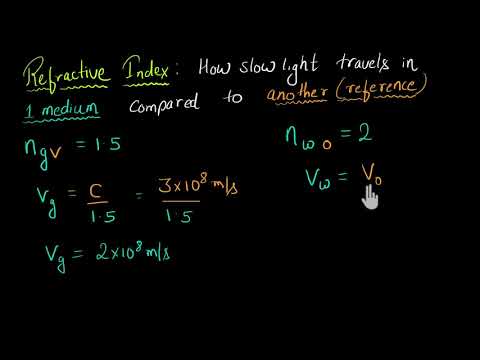 Refractive Index: How slow light travels in
1 medium compared to another (reference)
n_gv = 1.5
v_g = C/1.5 = 3×10⁸ m/s / 1.5
v_g = 2×10⁸ m/s
n_wo = 2
v_w = v_o